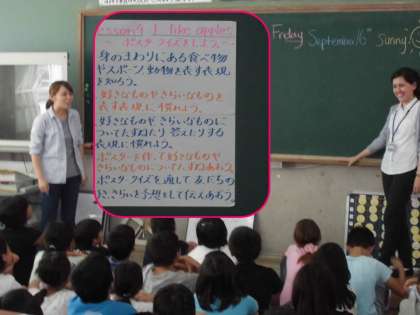 esson4 I like apples
ポスタークイズをしよう。
身のまわりにある食べ物
やスポーツ動物を表す表現
を知ろう。
好きなものやきらいなものを
表す表現に慣れよう。
好きなものやきらいなものに
ついてたずねたり答えたりする
表現に慣れよう。
ポスターを作って好きなものや
きらいなものについてたずねあおう。
ポスタークイズを通して友だちの
好ききらいを予想して伝えあおう
Friday September 16th Sunny!